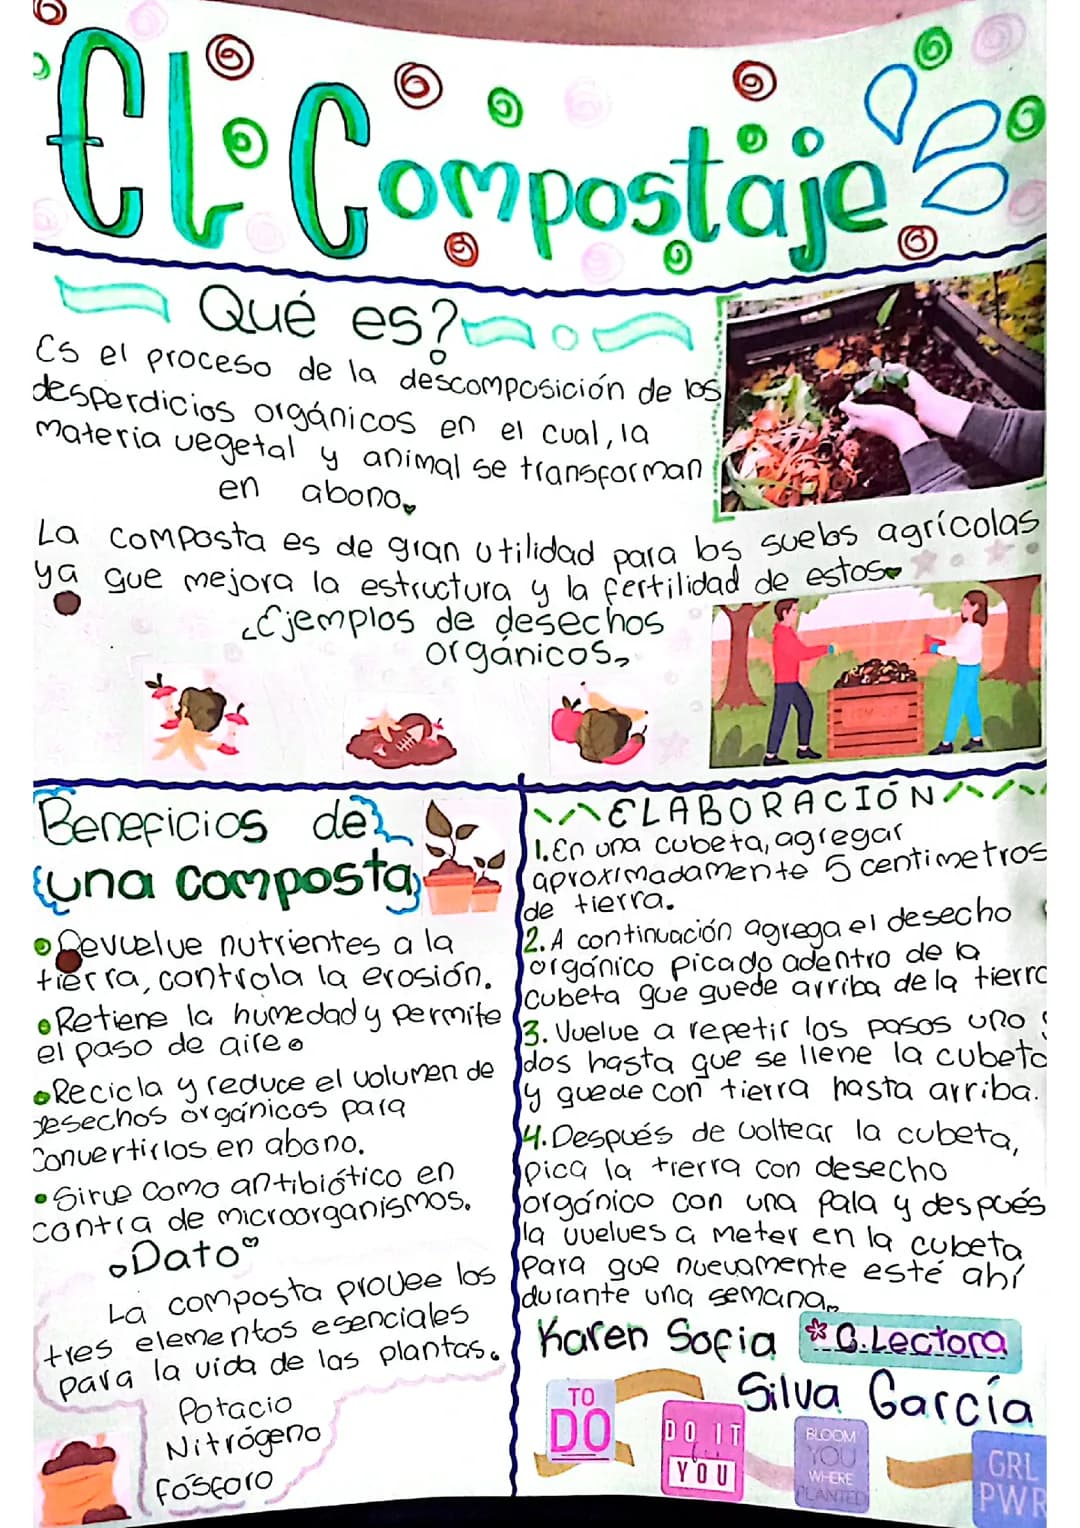 El Compostaje
Qué es?
Es el proceso de la descomposición de los
desperdicios orgánicos en el cual, la
materia vegetal y animal se transforman
en abono.
La composta es de gran utilidad para los suelos agrícolas
ya que mejora la estructura y la fertilidad de estos
Ejemplos de desechos
orgánicos
Beneficios de
una composta
• Devuelve nutrientes a la
tierra, controla la erosión.
• Retiene la humedad y permite
el paso de aire
• Recicla y reduce el volumen de
desechos orgánicos para
convertirlos en abono.
• Sirve como antibiótico en
contra de microorganismos.
Dato
La composta provee los
tres elementos esenciales
para la vida de las plantas.
Potacio
Nitrógeno
fósforo
ELABORACIÓN
1. En una cubeta, agregar
aproximadamente 5 centimetros
de tierra.
2. A continuación agrega el desecho
orgánico picado adentro de la
cubeta que quede arriba de la tierra
3. Vuelve a repetir los pasos uno y
dos hasta que se llene la cubeta
y quede con tierra hasta arriba.
4. Después de voltear la cubeta,
pica la tierra con desecho
orgánico con una pala y después
la vuelves a meter en la cubeta
para que nuevamente esté ahí
durante una semana
Karen Sofia * C. Lectora
Silva García
TO
DO
DO IT
YOU
BLOOM
YOU
WHERE
PLANTED
GRL
PWR